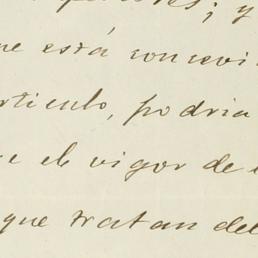 ; y
ue está concevi
rticulo, podria
e el vigor de
que tratan del